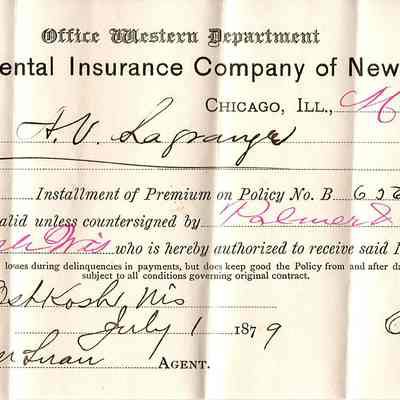 Office Western Department
ental Insurance Company of New
CHICAGO, ILL., M
A. V. Lagranger
Installment of Premium on Policy No. B 632
alid unless countersigned by Palmer &
sh Wis who is hereby authorized to receive said I
loses during delinquencies in payments, but does keep good the Policy from and after da
subject to all conditions governing original contract.
Oshkosh, Wis
July 1 1879
AGENT.